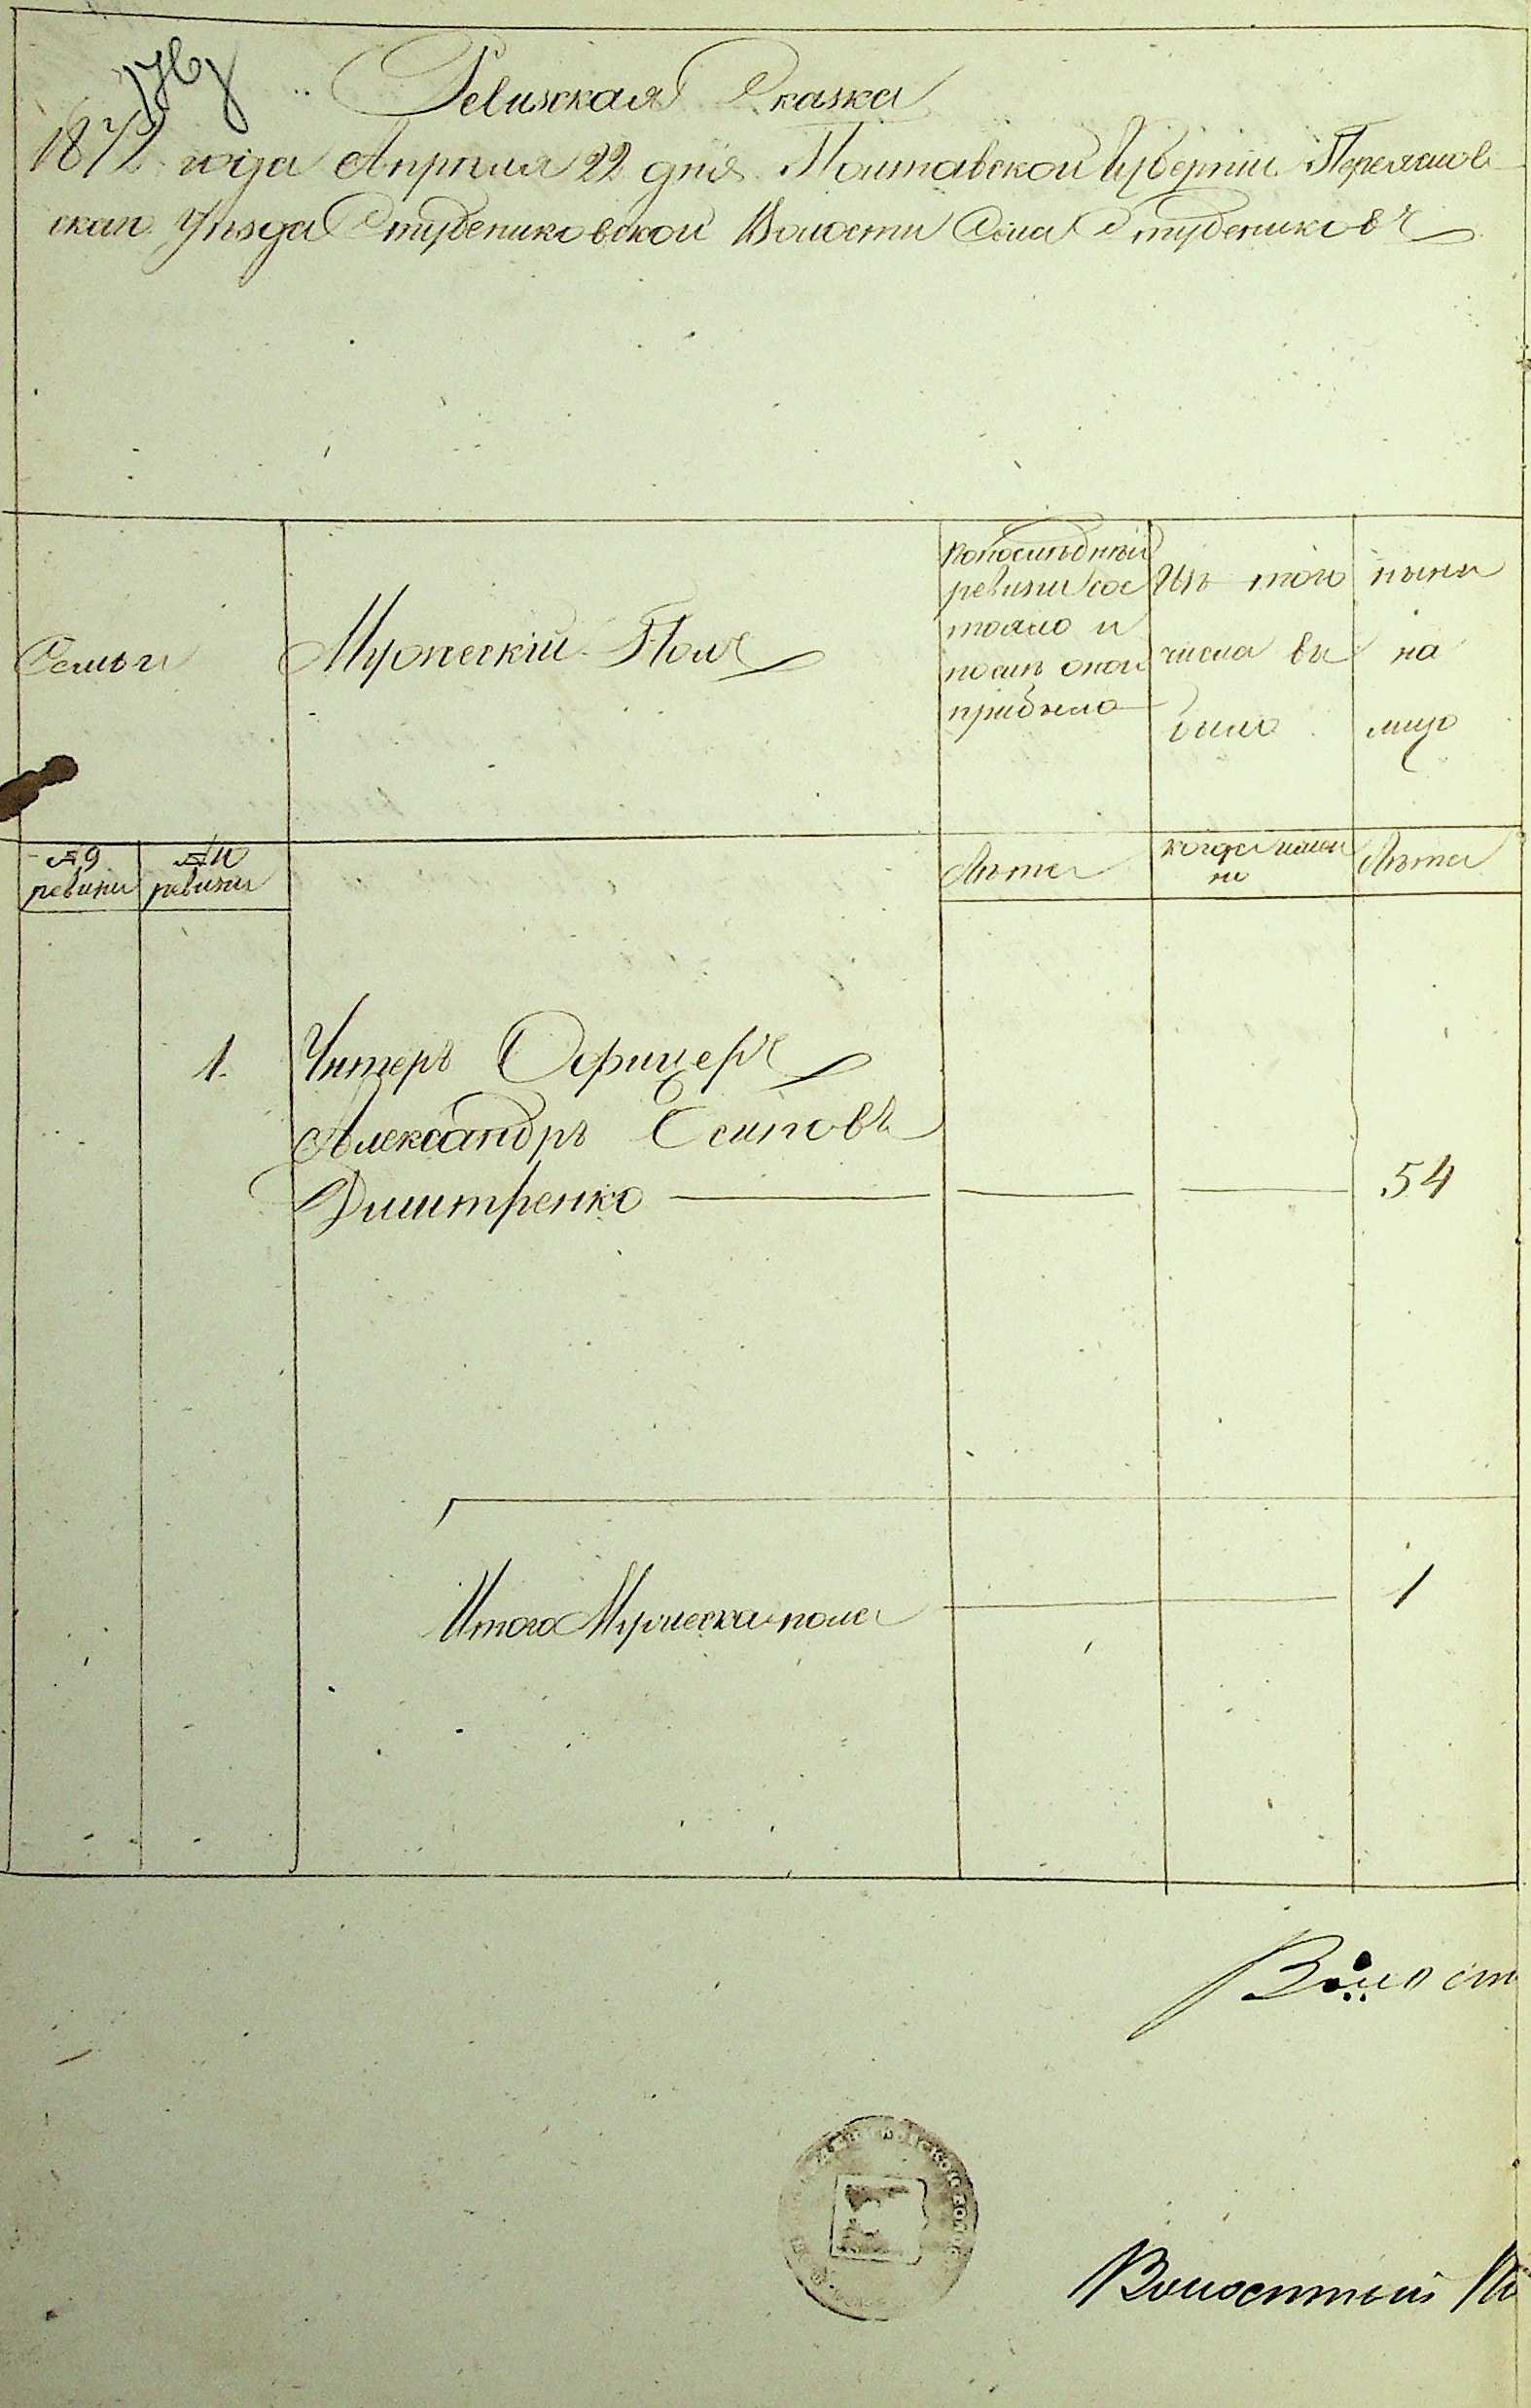 Ревизская Сказка
1872 года Апреля 22 дня Полтавской Губерніи Переяслов
скаго Уѣзда Студениковской Волости Села Студениковъ
Семьи
Мужескій Полъ
По последней
ревизіи сос
тояло и
послѣ оной
прибыло
Изъ того
числа вы
было
нынѣ
на
лицо
№ 9
ревизіи
№ 10
ревизіи
Лѣта
когда именно
Лѣта
1.
Унтеръ Офицеръ
Александръ Есиповъ
Дмитренко
54
Итого Мужеска пола
1
Волост
Волостный